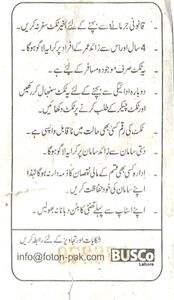 ۔ قانونی جرمانے سے بچنے کے لئے بغیر ٹکٹ سفر نہ کریں۔
۔ 4 سال اور اس سے زائد عمر کے افراد پر کرایہ لاگو ہوگا۔
۔ یہ ٹکٹ صرف موجودہ مسافر کے لئے ہے۔
۔ دوبارہ ادائیگی سے بچنے کے لئے ٹکٹ سنبھال کر رکھیں
اور ٹکٹ چیکر کے طلب کرنے پر ٹکٹ دکھائیں۔
۔ ٹکٹ کی رقم کسی بھی حالت میں ناقابل واپسی ہے۔
۔ دستی سامان سے زائد سامان پر کرایہ لاگو ہوگا۔
۔ ادارہ کسی بھی قسم کے مالی نقصان کا ذمہ دار نہ ہوگا لہٰذا
اپنے سامان کی خود حفاظت کریں۔
۔ اپنے سٹاپ سے پہلے گھنٹی کا بٹن دبانا نہ بھولیں۔
شکایات اور تجاویز کے لئے رابطہ کریں
info@foton-pak.com BUSCo
Lahore